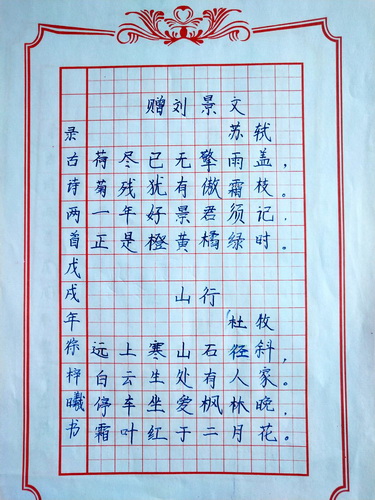 赠刘景文
苏轼
荷尽已无擎雨盖，
菊残犹有傲霜枝。
一年好景君须记.
正是橙黄橘绿时。
山行
杜牧
远上寒山石径斜，
白云生处有人家。
停车坐爱枫林晚，
霜叶红于二月花。
录古诗两首戊戌年徐梓曦书